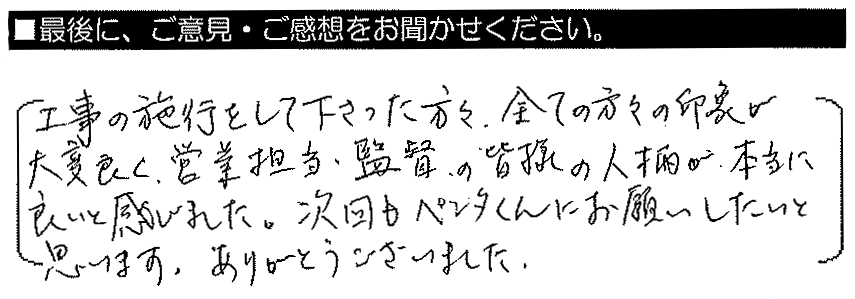 ■最後に、ご意見・ご感想をお聞かせください。
工事の施行をして下さった方々、全ての方々の印象が
大変良く、営業担当、監督、の皆様の人柄が本当に
良いと感じました。次回もペンタくんにお願いしたいと
思います。ありがとうございました。